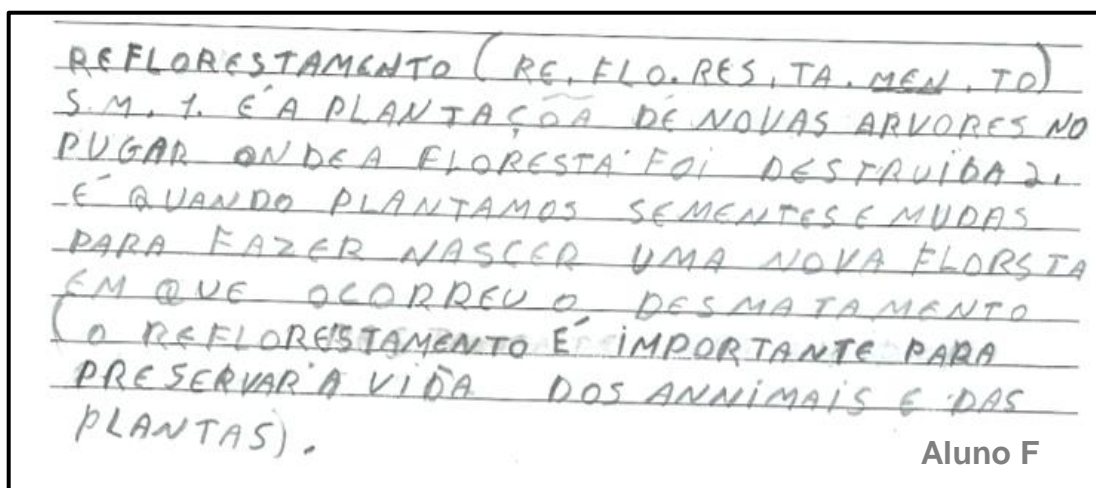 REFLORESTAMENTO (RE. FLO. RES. TA. MEN. TO)
S.M. 1. É A PLANTAÇÕA DE NOVAS ARVORES NO
PUGAR ONDE A FLORESTA FOI DESTRUÍDA 2.
É QUANDO PLANTAMOS SEMENTES E MUDAS
PARA FAZER NASCER UMA NOVA FLORSTA
EM QUE OCORREU O DESMATAMENTO
(O REFLORESTAMENTO É IMPORTANTE PARA
PRESERVAR A VIDA DOS ANNIMAIS E DAS
PLANTAS).
Aluno F